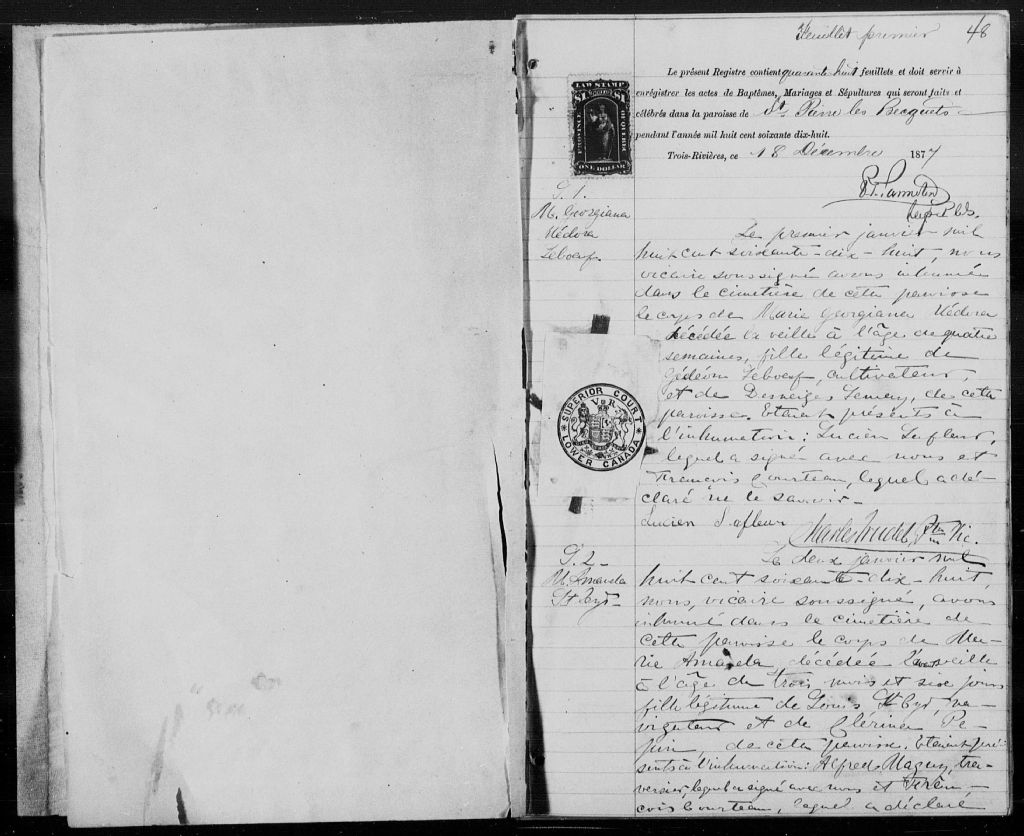 Feuillet premier 48
Le présent Registre contient quarante huit feuillets et doit servir à
enrégistrer les actes de Baptêmes, Mariages et Sépultures qui seront faits et
célébrés dans la paroisse de St. Pierre les Becquets
pendant l'année mil huit cent soixante dix-huit.
Trois-Rivières, ce 18 Décembre 1877
LAW STAMP
$1 $1
PROVINCE OF QUEBEC
ONE DOLLAR
S. 1.
M. Georgiana
Lebœuf
Le premier janvier mil
huit cent soixante-dix-huit, nous
vicaire soussigné avons inhumé
dans le cimetière de cette paroisse
le corps de Marie Georgiana
décédée la veille à l'âge de quatre
semaines, fille légitime de
Gédéon Lebœuf, cultivateur,
et de Desneiges Lemay, de cette
paroisse. Etaient présents à
l'inhumation: Lucien Lafleur,
lequel a signé avec nous et
François Courteau, lequel a dé-
claré ne le savoir-
Lucien Lafleur
Charles Trudel, Ptre Vic.
SUPERIOR COURT
V R
LOWER CANADA
S. 2-
M. Amanda
St Cyr-
Le deux janvier mil
huit cent soixante-dix-huit,
nous, vicaire soussigné, avons
inhumé dans le cimetière de
cette paroisse le corps de Ma-
rie Amanda décédée la veille
à l'âge de trois mois et six jours
fille légitime de Louis St Cyr, na-
vigateur et de Clérina Pe-
pin, de cette paroisse. Etaient pré-
sents à l'inhumation: Alfred
lequel a signé avec nous et Fran-
çois Courteau, lequel a déclaré